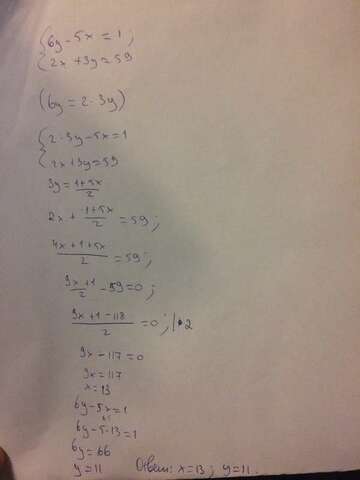 {6y-5x=1;
{2x+3y=59
(6y=2·3y)
{2·3y-5x=1
{2x+3y=59
3y=\frac{1+5x}{2}
2x+\frac{1+5x}{2}=59;
\frac{4x+1+5x}{2}=59;
\frac{9x+1}{2}-59=0;
\frac{9x+1-118}{2}=0;|·2
9x-117=0
9x=117
x=13
6y-5x=1
6y-5·13=1
6y=66
y=11 Ответ: x=13; y=11.